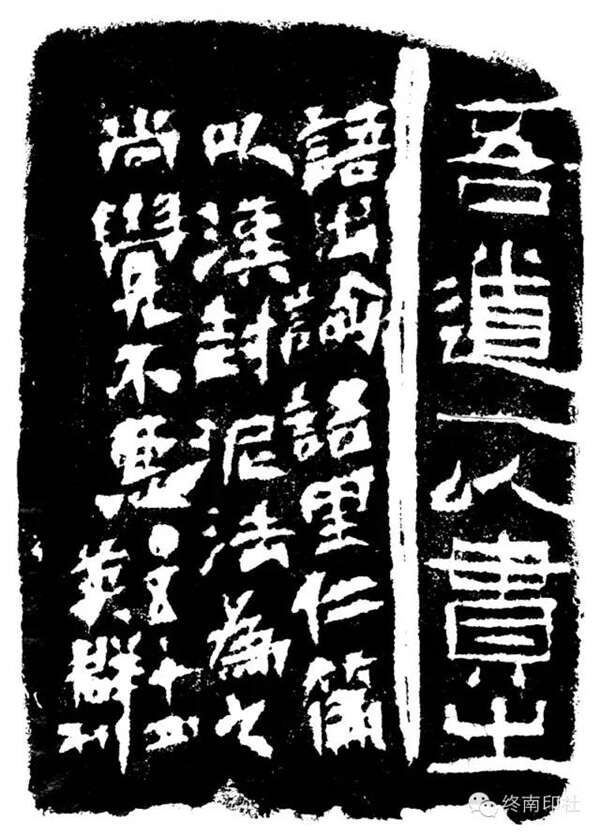 吾道一以貫之
語出論語里仁篇
以漢封泥法為之
尚覺不惡
英群刊
终南印社